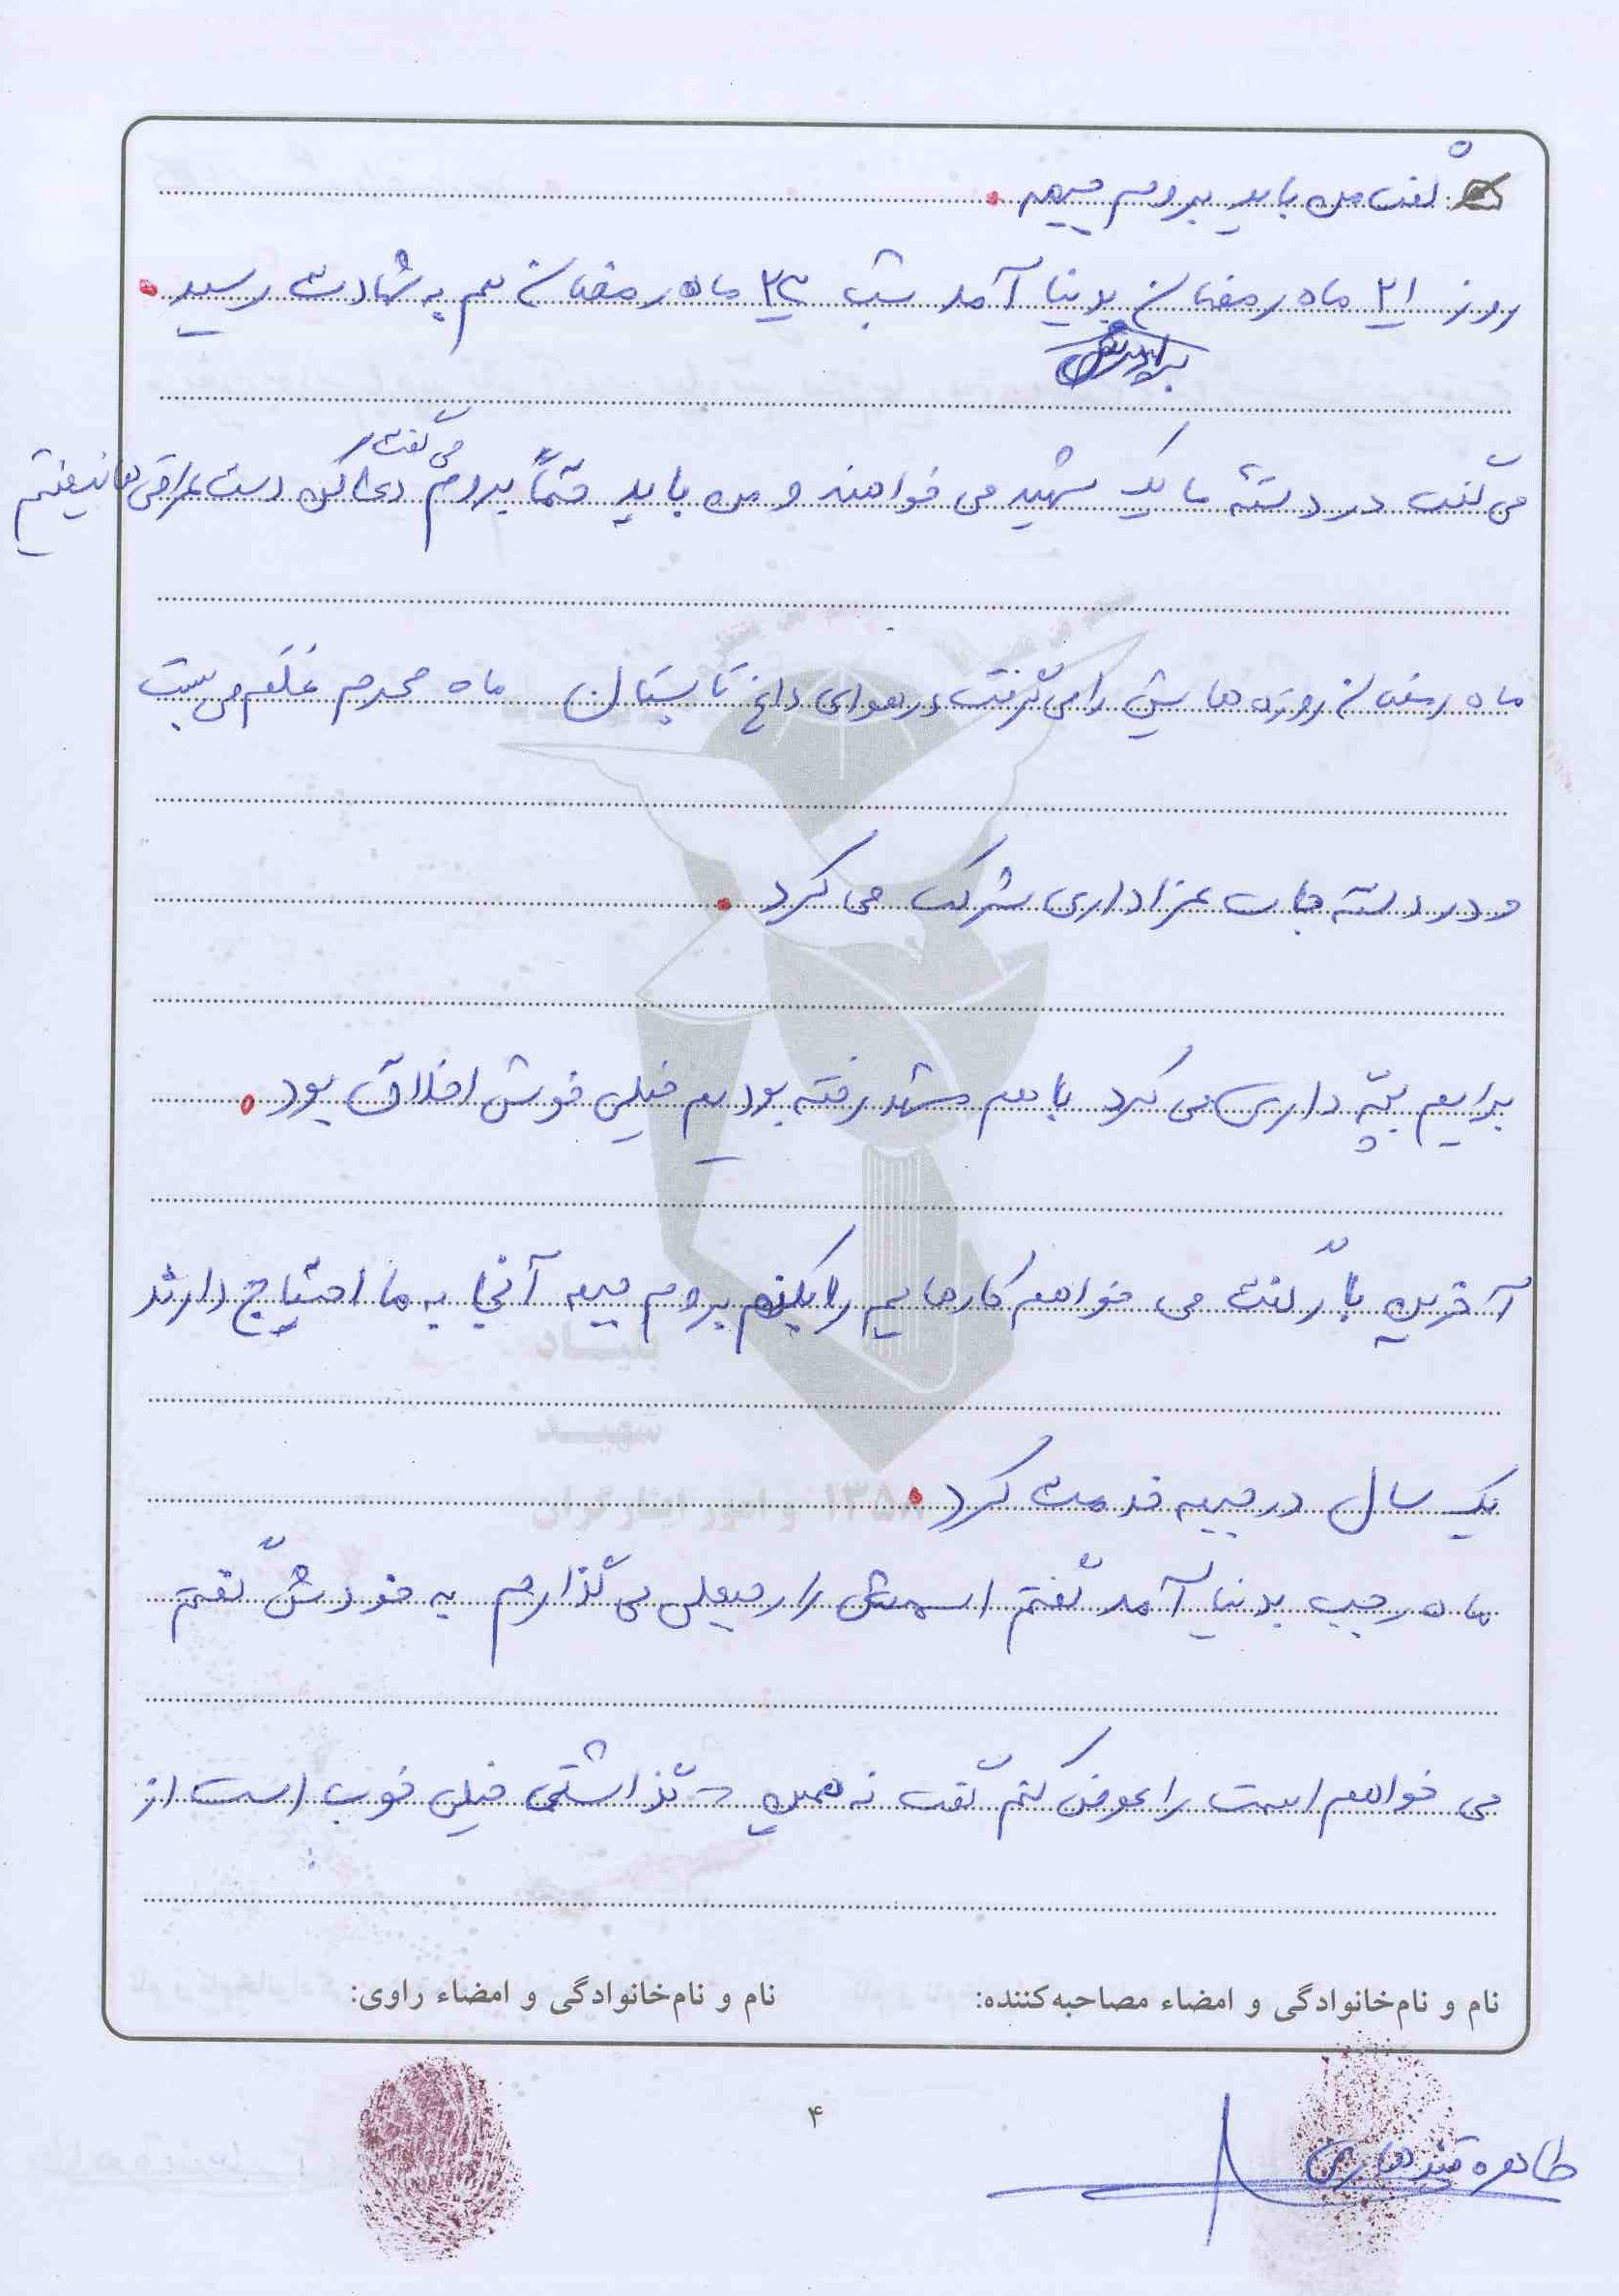 گفت من باید بروم جبهه.
روز ۲۱ ماه رمضان بدنیا آمد شب ۲۳ ماه رمضان هم به شهادت رسید.
می گفت در دسته ما یک شهید می خواهند و من باید حتماً بروم می گفت دعا کن دست عراقی ها نیفتم
ماه رمضان روزه هایش را می گرفت در هوای داغ تابستان ماه محرم عَلَم می بست
و در دسته جات عزاداری شرکت می کرد.
برایم بچّه داری می کرد با هم مشهد رفته بودیم خیلی خوش اخلاق بود.
آخرین بار گفت می خواهم کارهایم را بکنم بروم جبهه آنجا به ما احتیاج دارند
یک سال در جبهه خدمت کرد.
ماه رجب بدنیا آمد گفتم اسمش را رجبعلی می گذارم به خودش گفتم
می خواهم اسمت را عوض کنم گفت نه همین که گذاشتی خیلی خوب است از
نام و نام‌خانوادگی و امضاء مصاحبه‌کننده: نام و نام‌خانوادگی و امضاء راوی:
طاهره قندهاری
۴
بنیاد
شهید
و امور ایثارگران ۱۳۵۸